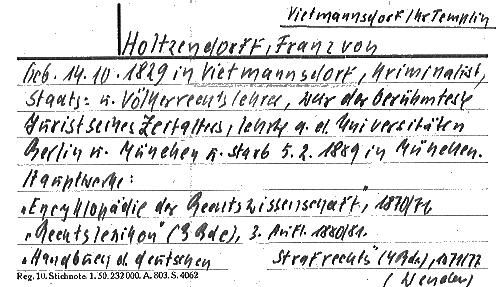 Vietmannsdorf / Kr Templin
Holtzendorff, Franz von
Geb. 14.10.1829 in Vietmannsdorf, Kriminalist,
Staats- u. Völkerrechtslehrer, war der berühmteste
Jurist seines Zeitalters, lehrte a. d. Universitäten
Berlin u. München u. starb 5.2.1889 in München.
Hauptwerke:
„Encyklopädie der Rechtswissenschaft", 1870/71
„Rechtslexikon" (3 Bde), 3. Aufl. 1880/81.
„Handbuch d. deutschen Strafrechts" (4 Bde), 1871/77
Reg. 10. Stichnote. 1. 50. 232 000. A. 803. S. 4062
(Wenden)